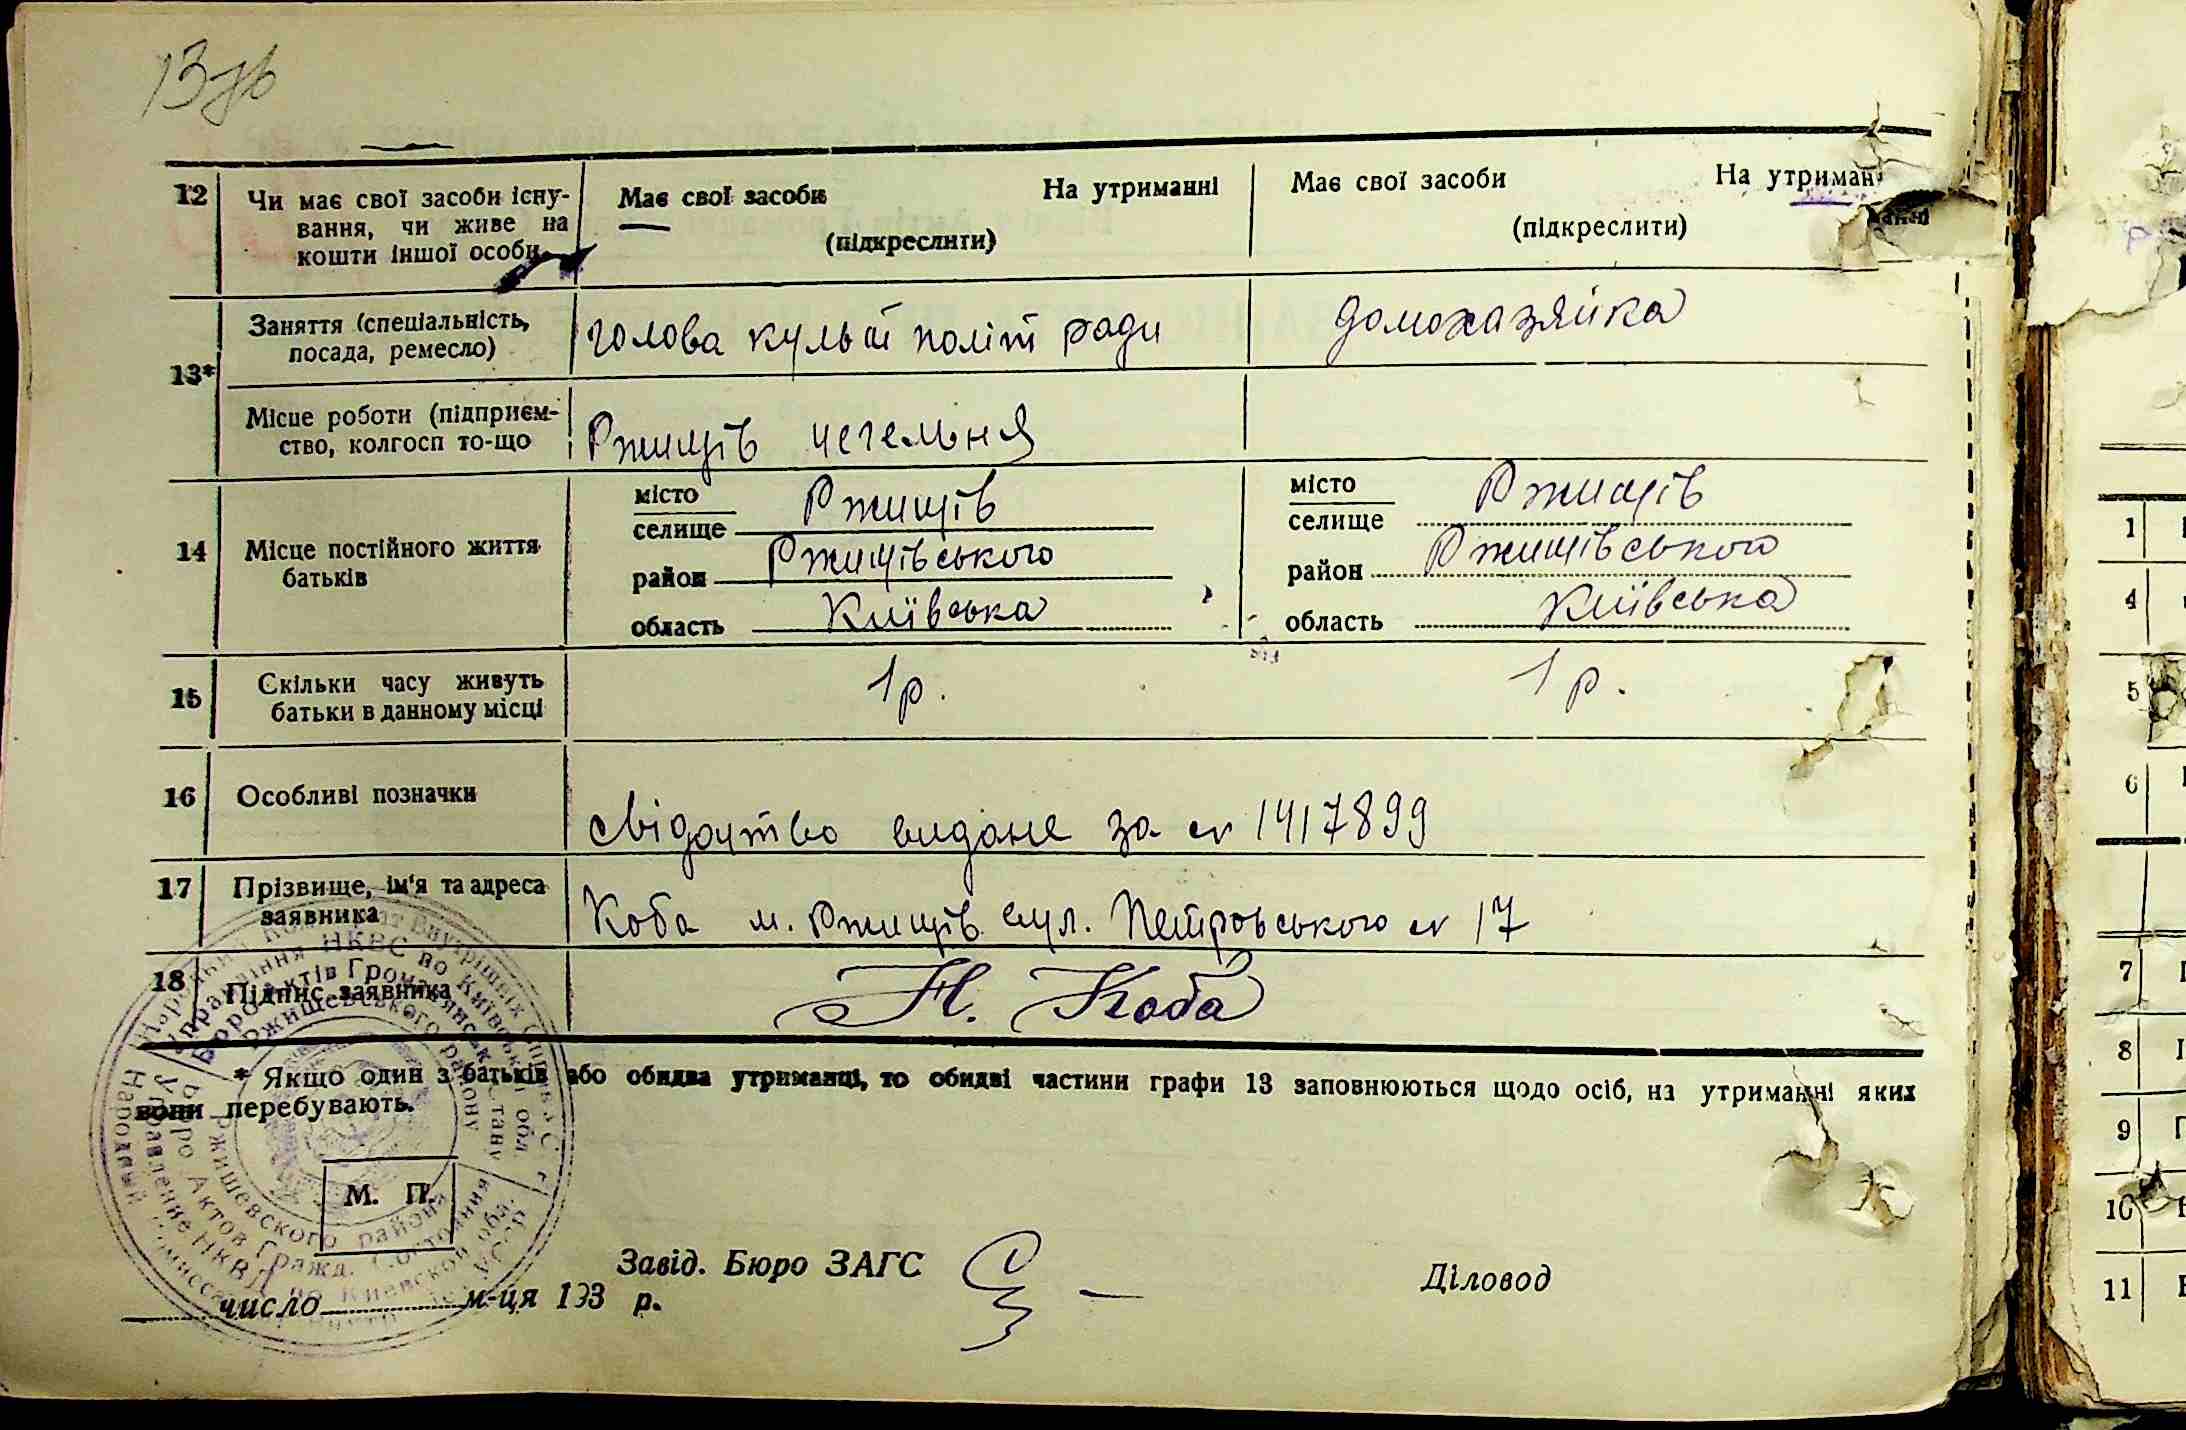 13зв
12 Чи має свої засоби існу-
вання, чи живе на
кошти іншої особи
Має свої засоби На утриманні
(підкреслити)
Має свої засоби На утриман
(підкреслити)
13*
Заняття (спеціальність,
посада, ремесло)
голова культ політ ради
домохазяйка
Місце роботи (підприєм-
ство, колгосп то-що
Ржищів цегельня
14 Місце постійного життя
батьків
місто
селище Ржищів
район Ржищівського
область Київська
місто
селище Ржищів
район Ржищівського
область Київська
15 Скільки часу живуть
батьки в данному місці
1 р. 1 р.
16 Особливі позначки
свідоцтво видане за № 1417899
17 Прізвище, ім'я та адреса
заявника
Коба м. Ржищів вул. Петровського № 17
18 Підпис заявника
Н. Коба
* Якщо один з батьків або обидва утриманці, то обидві частини графи 13 заповнюються щодо осіб, на утриманні яких
вони перебувають.
Управління НКВС по Київській обл
Бюро Актів Громадянськ. Стану
Ржищевського району
Управление НКВД по Киевской обл.
Бюро Актов Гражд. Состояния
Ржищевского района
М. П.
Завід. Бюро ЗАГС
Діловод
число м-ця 193 р.
1
4
5
6
7
8
9
10
11